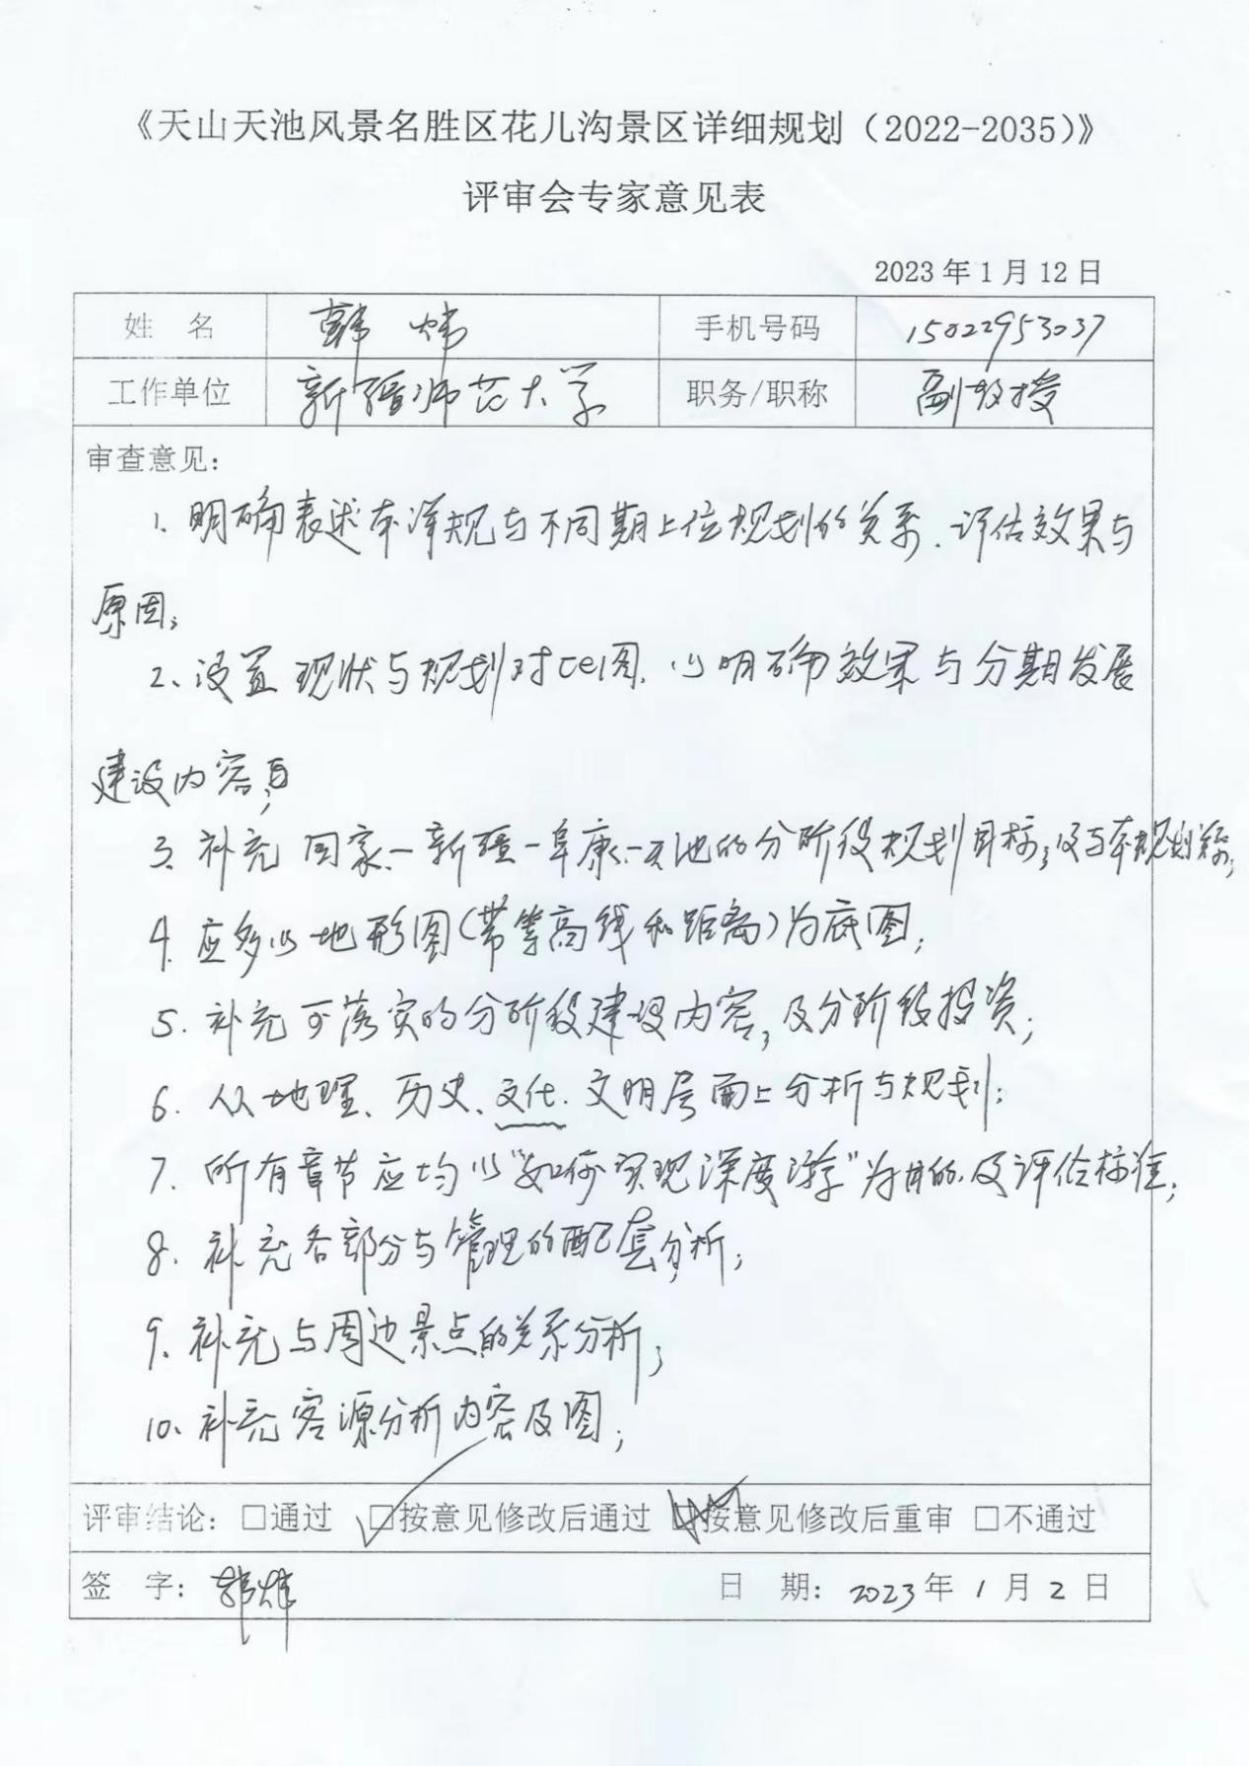 《天山天池风景名胜区花儿沟景区详细规划（2022-2035）》
评审会专家意见表
2023年1月12日
姓 名 韩炜 手机号码 15022953037
工作单位 新疆师范大学 职务/职称 副教授
审查意见：
1. 明确表述本详规与不同期上位规划的关系、评估效果与
原因；
2、设置现状与规划对比图，以明确效果与分期发展
建设内容；
3. 补充国家-新疆-阜康-天池的分阶段规划目标，及与本规划
4. 应多以地形图（带等高线和距离）为底图；
5. 补充可落实的分阶段建设内容，及分阶段投资；
6. 从地理、历史、文化、文明层面上分析与规划；
7. 所有章节应均以“如何实现深度游”为目的及评估标准；
8. 补充各部分与管理的配套分析；
9. 补充与周边景点的关系分析；
10. 补充客源分析内容及图；
评审结论：□通过 □按意见修改后通过 □按意见修改后重审 □不通过
签 字：韩炜 日 期：2023年1月2日